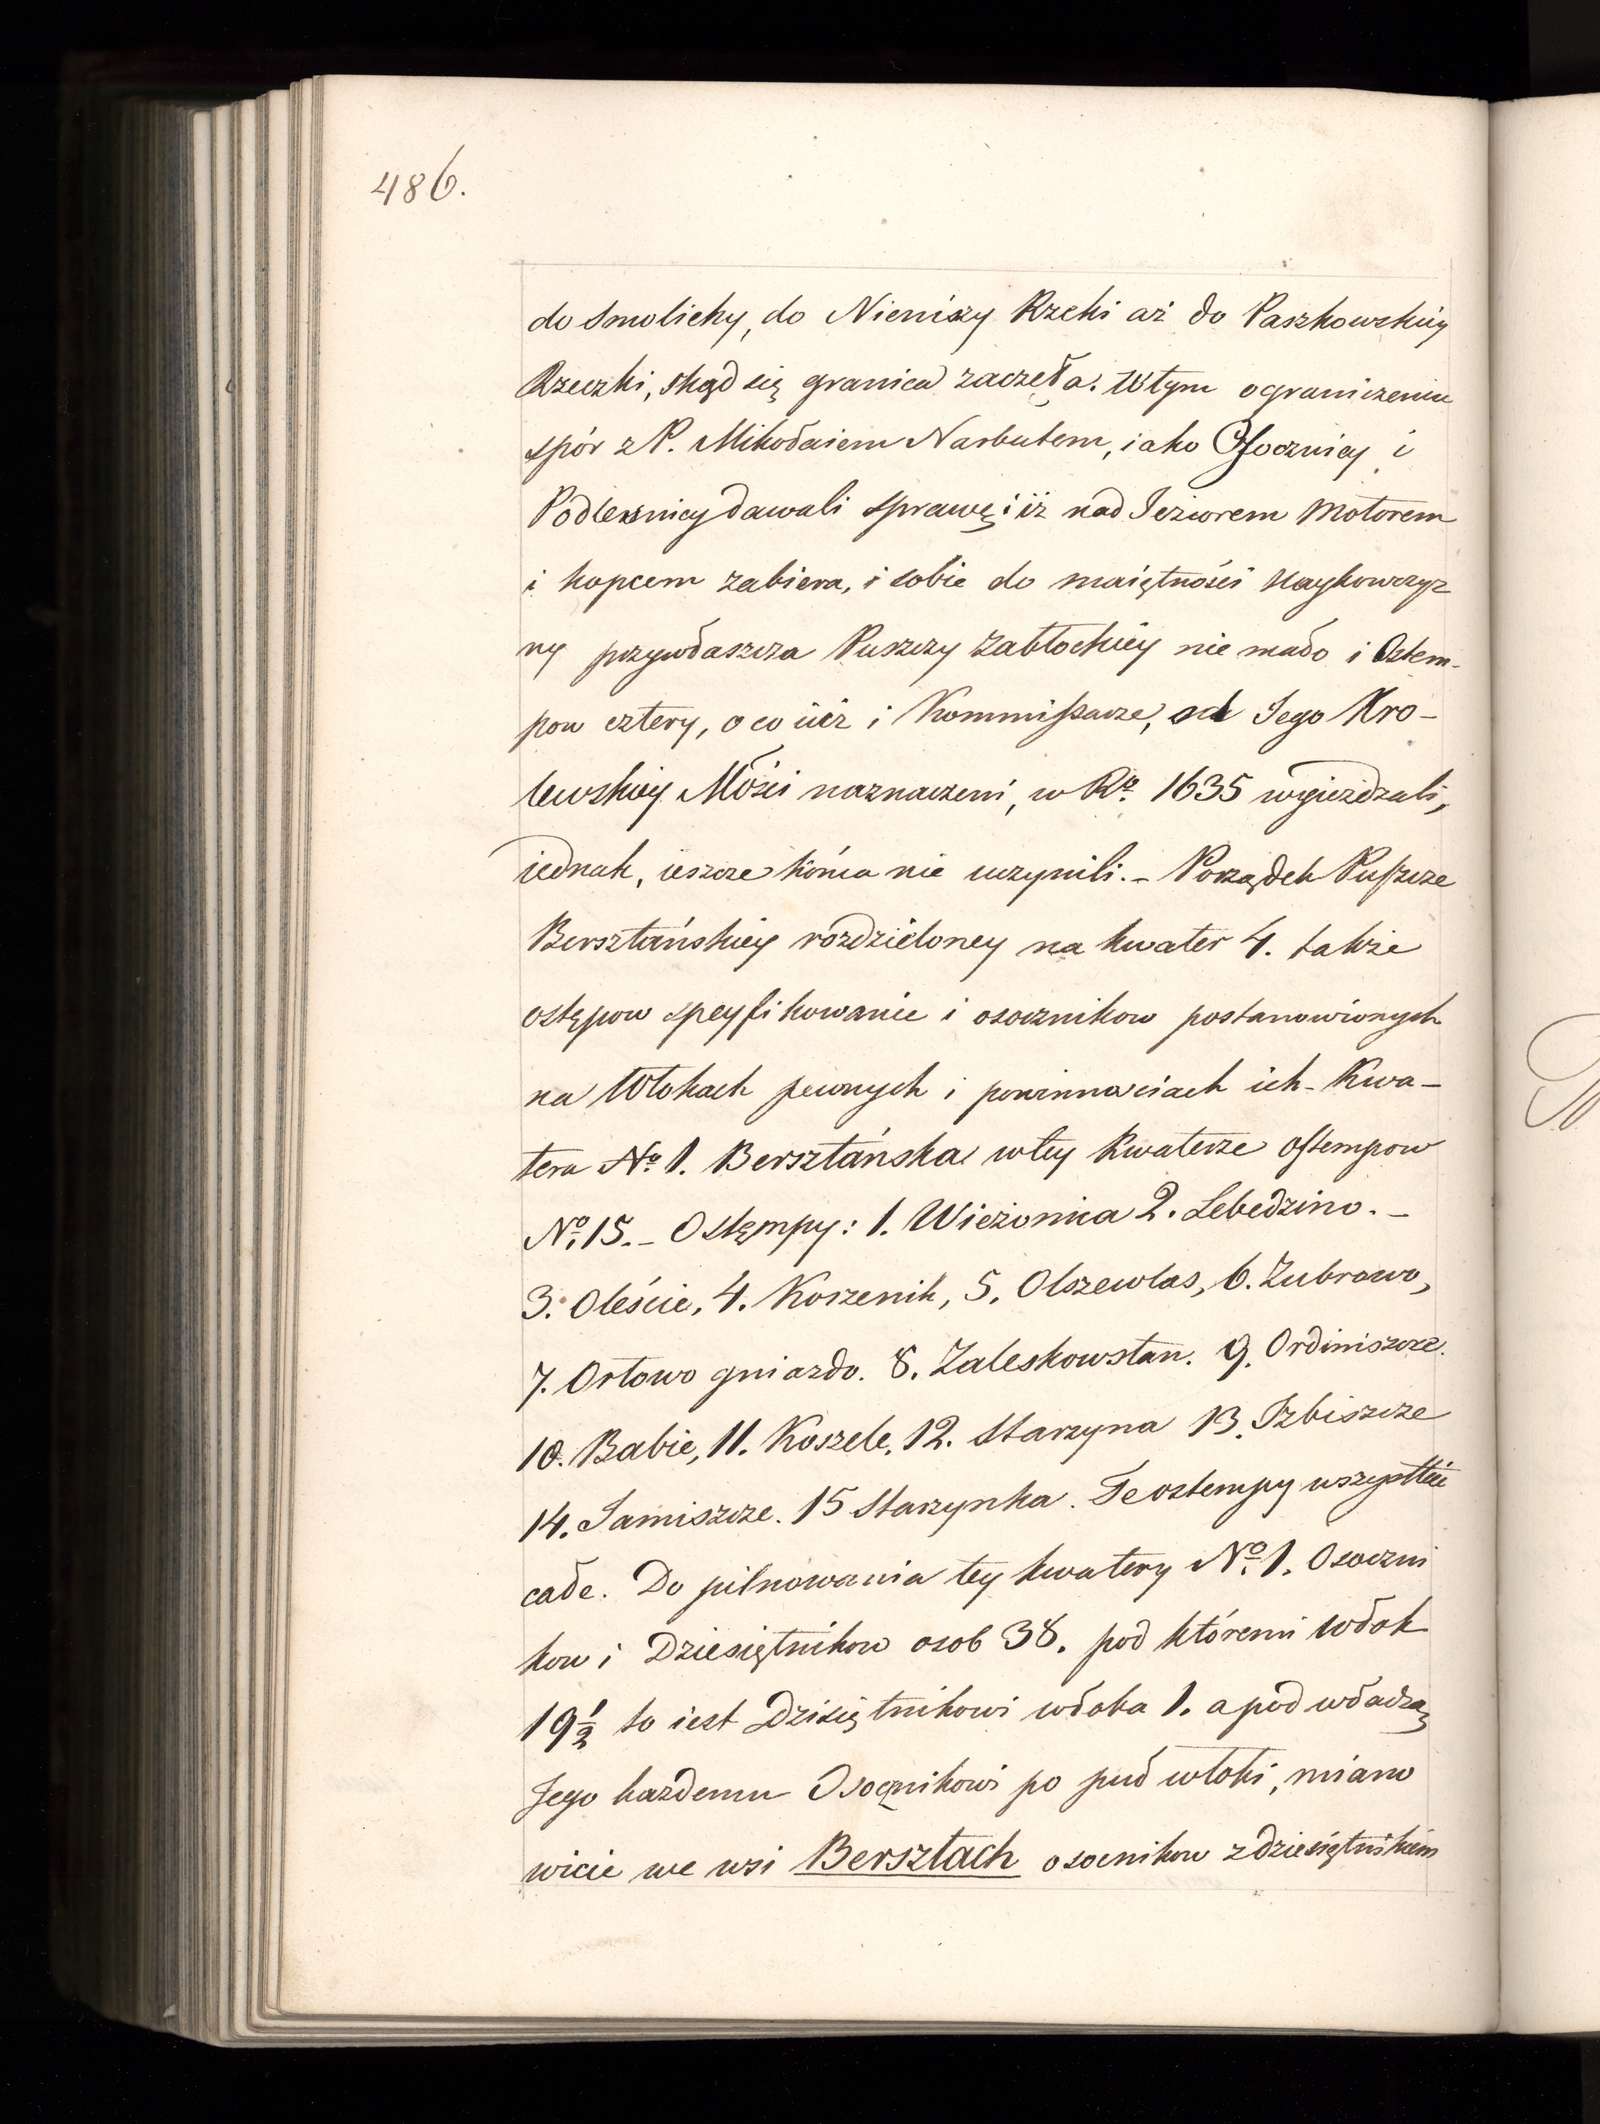 486.
do Smolichy, do Nieniszy Rzeki aż do Paszkowskiey
Rzeczki, skąd się granica zaczęła. W tym ograniczeniu
spór z P. Mikołaiem Narbutem, iako Osocznicy i
Podlesnicy dawali sprawę, iiż nad Jeziorem Motorem
i kopcem zabiera, i sobie do maiętności Kaykowczyz
ny przywłaszcza Puszczy Zabłockiey nie mało i Ostem-
pow cztery, o co iiż i Kommissarze, od Jego Kro-
lewskiey Mości naznaczeni, w Rº 1635 wyieżdzali,
iednak, ieszcze końca nie uczynili. - Porządek Puszcze
Bersztańskiey rozdzieloney na kwater 4. także
ostępow specyfikowanie i osocznikow postanowionych
na Włokach pewnych i powinnosciach ich - Kwa-
tera Nº 1. Bersztańska w tey Kwaterze Ostempow
Nº 15. - Ostęmpy: 1. Wieżonica 2. Lebedzino. -
3. Oleście, 4. Korzenik, 5. Olszewlas, 6. Zubrowo,
7. Orłowo gniazdo. 8. Zaleskowstan. 9. Ordiniszcze.
10. Babie, 11. Koszele, 12. Starzyna 13. Izbiszcze
14. Jamiszcze. 15 Starzynka. Te ostempy wszystkie
całe. Do pilnowania tey kwatery Nº 1. Osoczni
kow i Dziesiętnikow osob 38. pod któremi włok
19 1/2 to iest Dzisiętnikowi włoka 1. a pod władzą
Jego każdemu Osocznikowi po puł włoki, miano
wicie we wsi Bersztach osocnikow z dziesiętnikiem